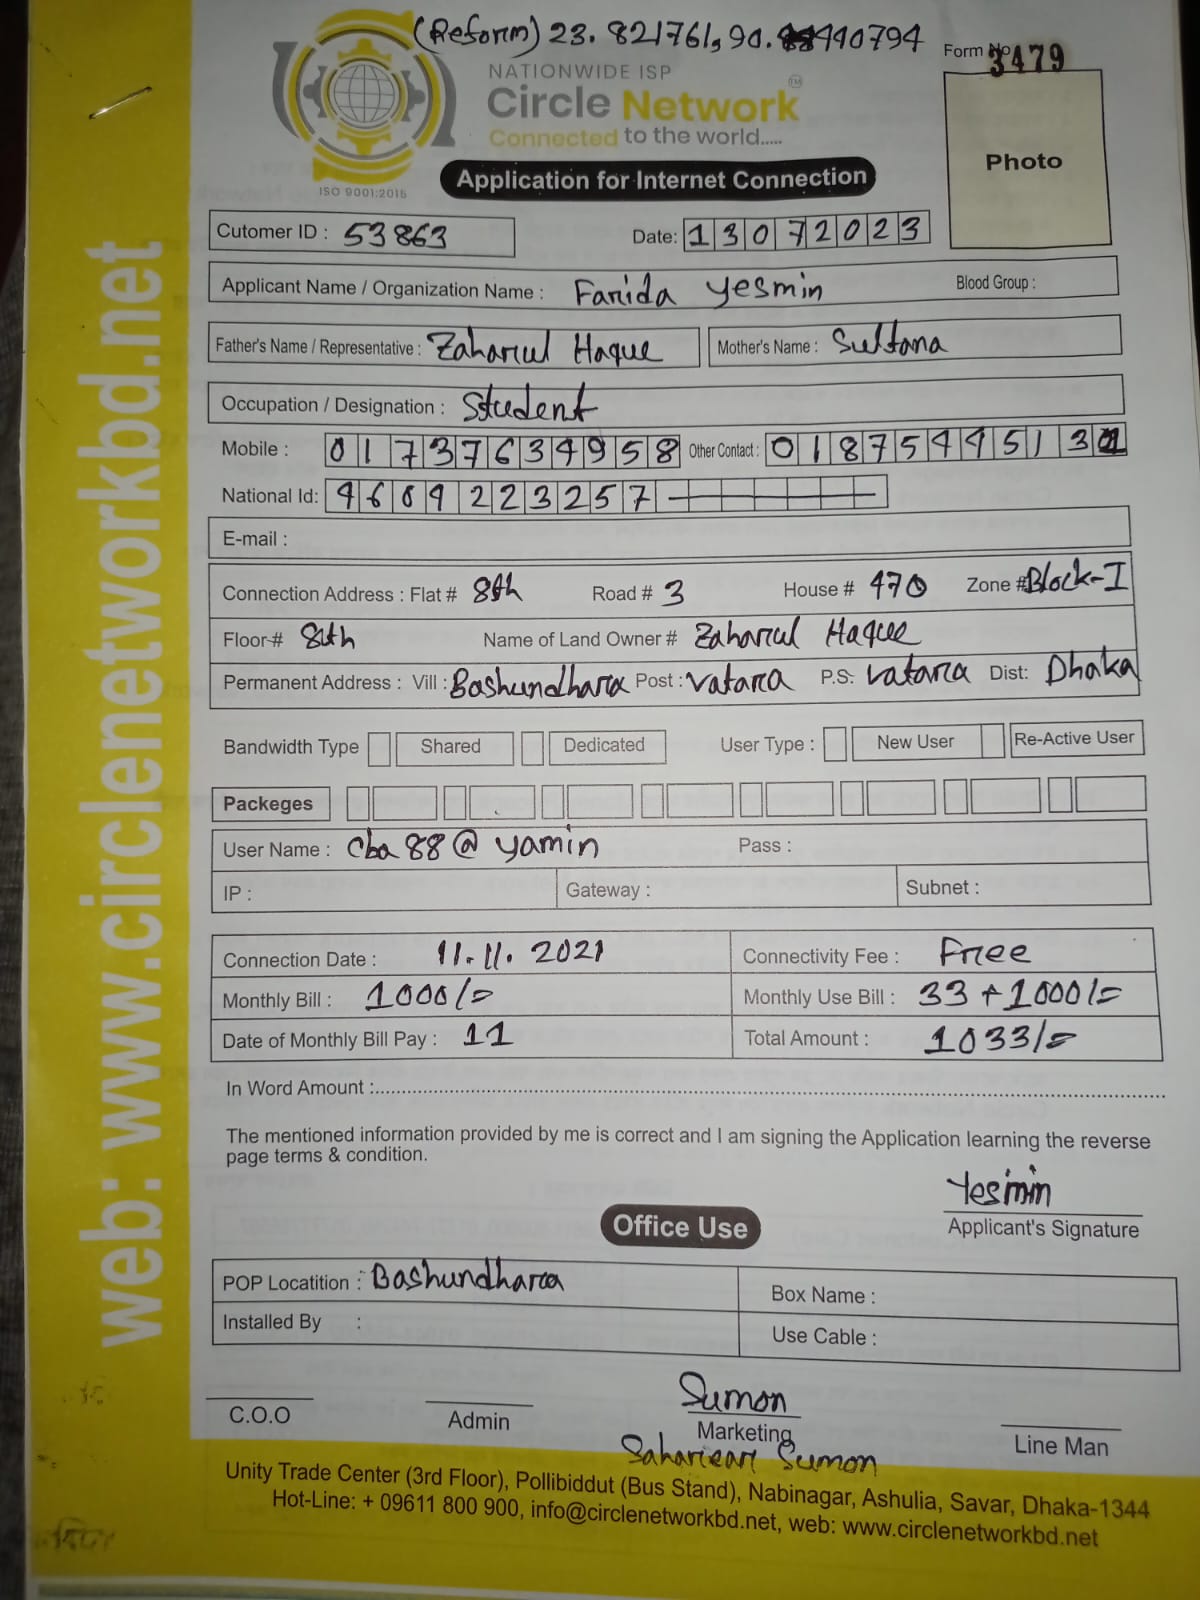 (Reform) 23.821761, 90.440794
Form No 3479
NATIONWIDE ISP
Circle Network TM
Connected to the world.....
ISO 9001:2015
Application for Internet Connection
Photo
Cutomer ID : 53863
Date: 13072023
Applicant Name / Organization Name : Farida Yesmin Blood Group :
Father's Name / Representative : Zaharul Haque Mother's Name : Sultana
Occupation / Designation : Student
Mobile : 01737634958 Other Contact : 0187544513
National Id: 4609223257
E-mail :
Connection Address : Flat # 8th Road # 3 House # 470 Zone # Block-I
Floor # 8th Name of Land Owner # Zaharul Haque
Permanent Address : Vill : Bashundhara Post : vatara P.S: vatara Dist: Dhaka
Bandwidth Type Shared Dedicated User Type : New User Re-Active User
Packeges
User Name : cba88@yamin Pass :
IP : Gateway : Subnet :
Connection Date : 11.11.2021 Connectivity Fee : Free
Monthly Bill : 1000/= Monthly Use Bill : 33+1000/=
Date of Monthly Bill Pay : 11 Total Amount : 1033/=
In Word Amount :
The mentioned information provided by me is correct and I am signing the Application learning the reverse
page terms & condition.
Yesmin
Applicant's Signature
Office Use
POP Locatition : Bashundhara Box Name :
Installed By : Use Cable :
Sumon
C.O.O Admin Marketing Line Man
Sahariear Sumon
Unity Trade Center (3rd Floor), Pollibiddut (Bus Stand), Nabinagar, Ashulia, Savar, Dhaka-1344
Hot-Line: + 09611 800 900, info@circlenetworkbd.net, web: www.circlenetworkbd.net
web: www.circlenetworkbd.net